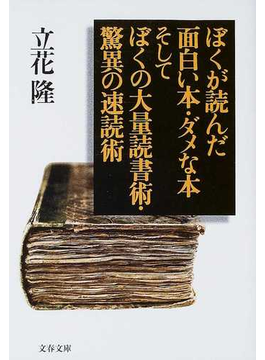 ぼくが読んだ
面白い本・ダメな本
そして
ぼくの大量読書術・
驚異の速読術
立花隆
文春文庫